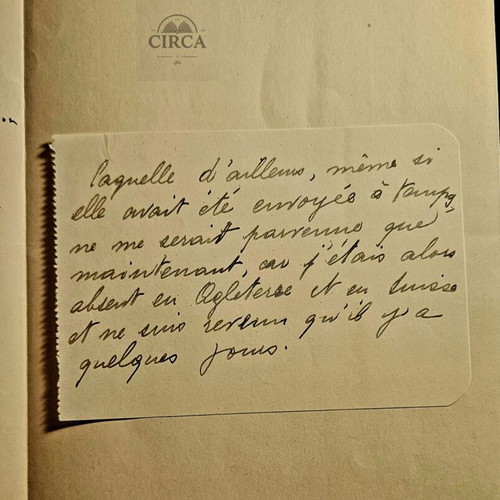 CIRCA
laquelle d'ailleurs, même si
elle avait été envoyée à temps,
ne me serait parvenue que
maintenant, car j'étais alors
absent en Agleterre et en Suisse
et ne suis revenu qu'il y a
quelques jours.